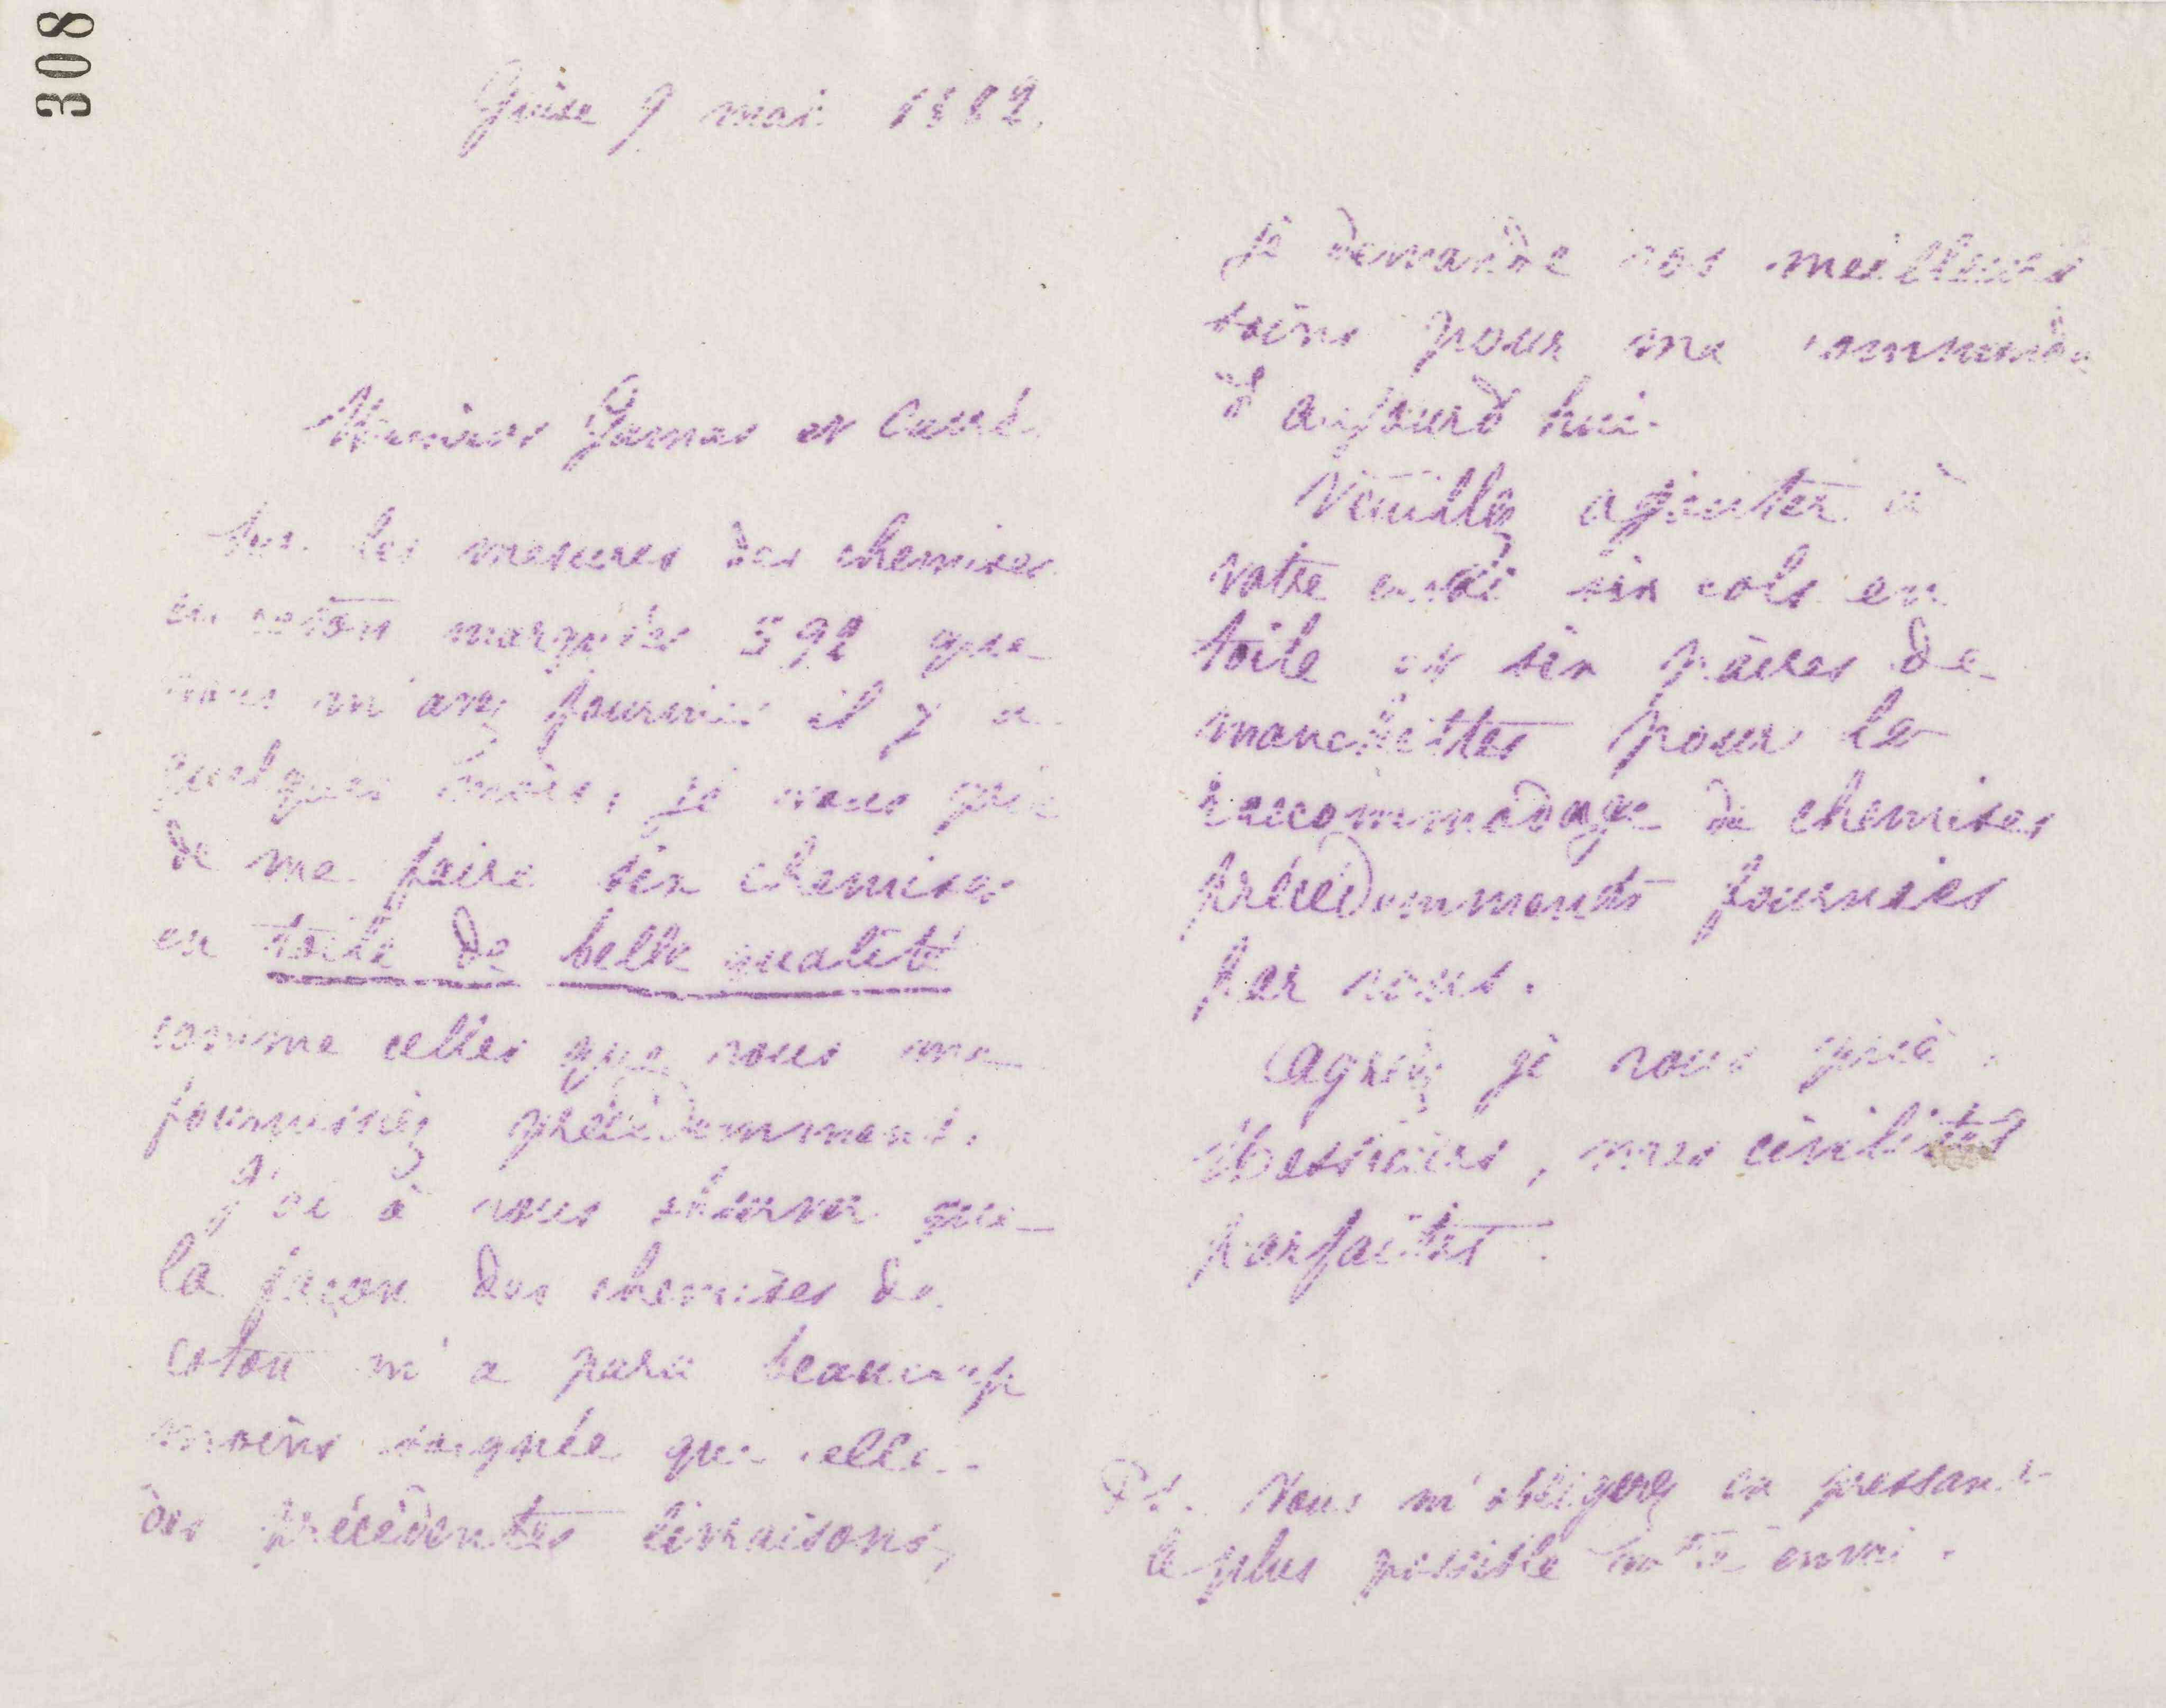 308
Guise 9 mai 1882.
Messieurs Garnas et Curré
Sur les mesures des chemises
en coton marquées 592 que
vous m'avez fournies il y a
quelques mois, je vous prie
de me faire six chemises
en toile de belle qualité
comme celles que vous me
fournissiez précédemment.
J'ai à vous observer que
la façon des chemises de
coton m'a paru beaucoup
moins soignée que celle
des précédentes livraisons,
je demande vos meilleurs
soins pour ma commande
d'aujourd'hui.
Veuillez ajouter à
votre envoi six cols en
toile et six paires de
manchettes pour le
raccommodage de chemises
précédemment fournies
par vous.
Agréez je vous prie,
Messieurs, mes civilités
parfaites.
PS. Vous m'obligerez en pressant
le plus possible votre envoi.